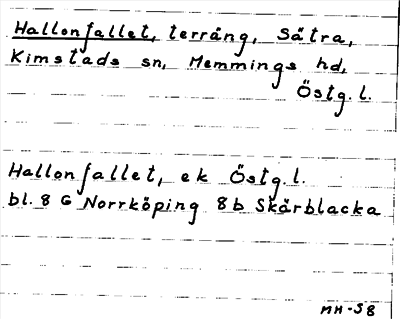 Hallonfallet, terräng, Sätra,
Kimstads sn, Memmings hd,
Östg. l.
Hallonfallet, ek Östg. l.
bl. 8 G Norrköping 8b Skärblacka
MH-58